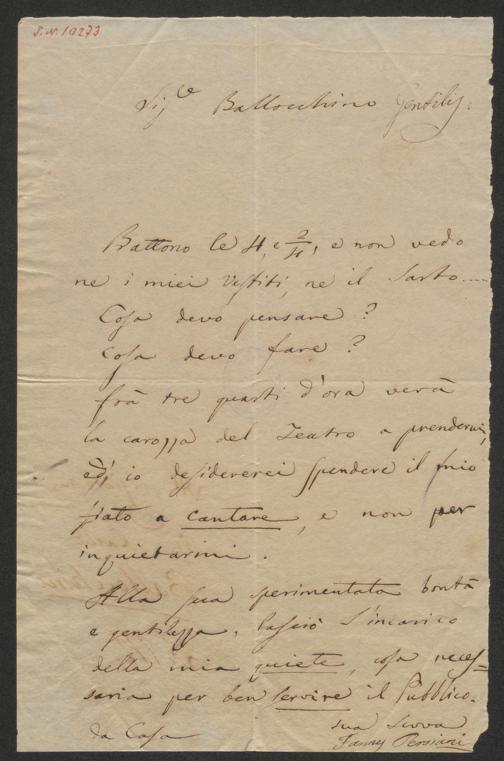 I.N. 10273
Sigre Ballocchino Gentiliss:
Battono le 4, e 2/4, e non vedo
ne i miei vestiti, ne il Sarto....
Cosa devo pensare?
Cosa devo fare?
frà tre quarti d'ora verà
la carozza del Teatro a prendermi,
io desidererei spendere il mio
fiato a cantare, e non per
inquietarmi.
Alla sua sperimentata bontà
e gentilezza, lascio l'incarico
della mia quiete, cosa neces=
saria per ben servire il Pubblico.
da Casa
sua Serva
Fanny Persiani